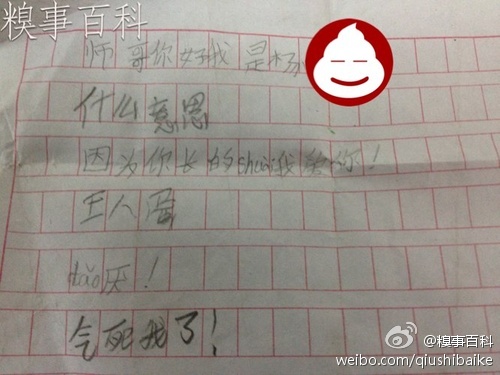 糗事百科
师哥你好我是杨
什么意思
因为你长的shuai我爱你！
王人蛋
tǎo厌！
气死我了！
@糗事百科
weibo.com/qiushibaike